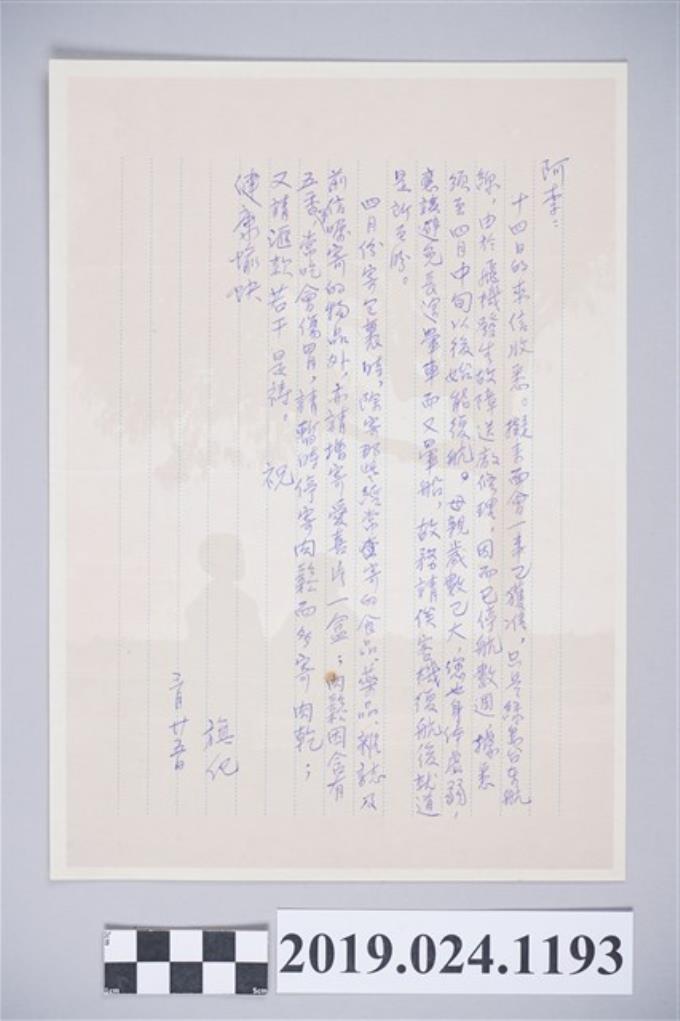 阿李：
十四日的來信收悉。擬來面會一事已獲准，只是綠島台東航
線，由於飛機發生故障送廠修理，因而已停航數週，據悉
須至四月中旬以後始能復航。母親歲數已大，您也身体虛弱，
應該避免長途暈車而又暈船，故務請俟客機復航後就道
是所至盼。
四月份寄包裹時，除寄那些經常在寄的食品、藥品、雜誌及
前信囑寄的物品外，亦請增寄愛喜片一盒；肉鬆因含有
五香，常吃會傷胃，請暫時停寄肉鬆而多寄肉乾；
又請滙款若干是禱。祝
健康愉快
旗化
三月廿五日
2019.024.1193
5cm